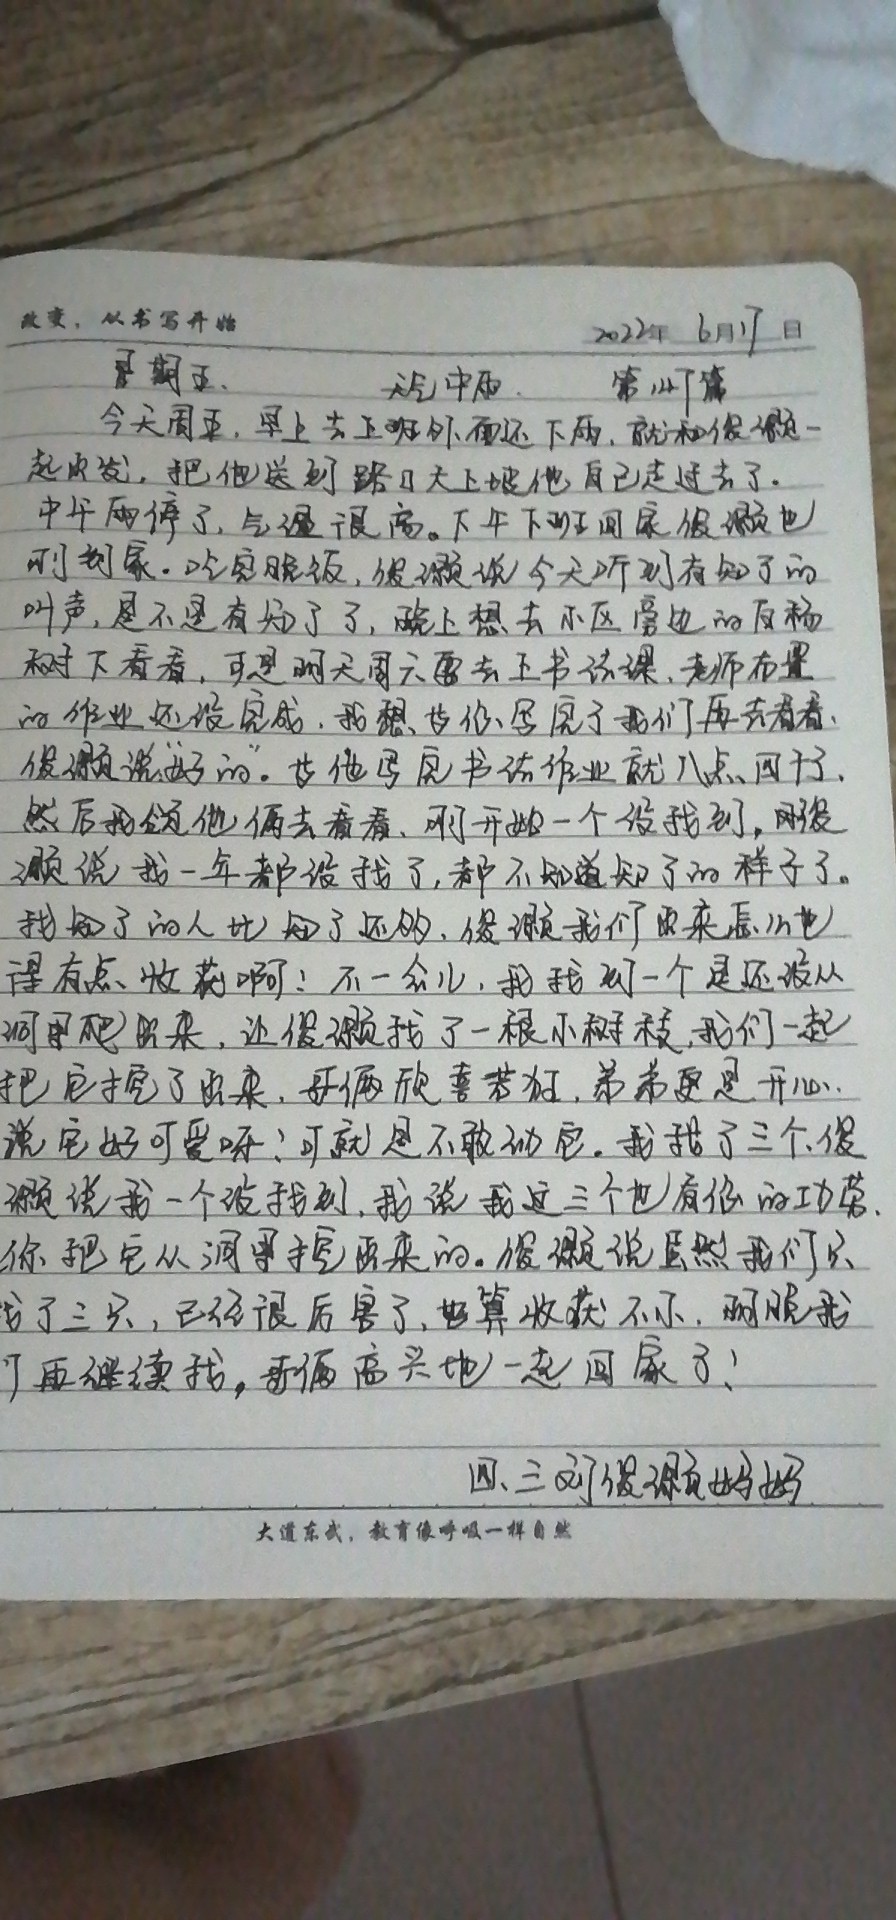 改变，从书写开始
2022年 6月17日
星期五. 天气中雨. 第 篇
今天周五，早上去上班外面还下雨，就和俊灏一
起出发，把他送到路口大上坡他自己走过去了．
中午雨停了，气温很高。下午下班回家俊灏也
刚到家．吃完晚饭，俊灏说今天听到有知了的
叫声，是不是有知了了，晚上想去小区旁边的白杨
树下看看，可是明天周六要去上书法课，老师布置
的作业还没完成，我想，等你写完了我们再去看看，
俊灏说“好的”。等他写完书法作业就八点四十了，
然后我领他俩去看看，刚开始一个没找到，刚俊
灏说我一年都没找了，都不知道知了的样子了。
找知了的人比知了还多，俊灏我们出来怎么也
得有点收获啊！不一会儿，我找到一个是还没从
洞里爬出来，让俊灏找了一根小树枝，我们一起
把它挖了出来，哥俩欣喜若狂，弟弟更是开心，
说它好可爱呀！可就是不敢动它。我找了三个，俊
灏说我一个没找到，我说我这三个也有你的功劳，
你把它从洞里挖出来的。俊灏说虽然我们只
找了三只，已经很厉害了，也算收获不小，明晚我
们再继续找。哥俩高兴地一起回家了！
四、三刘俊灏妈妈
大道东武，教育像呼吸一样自然